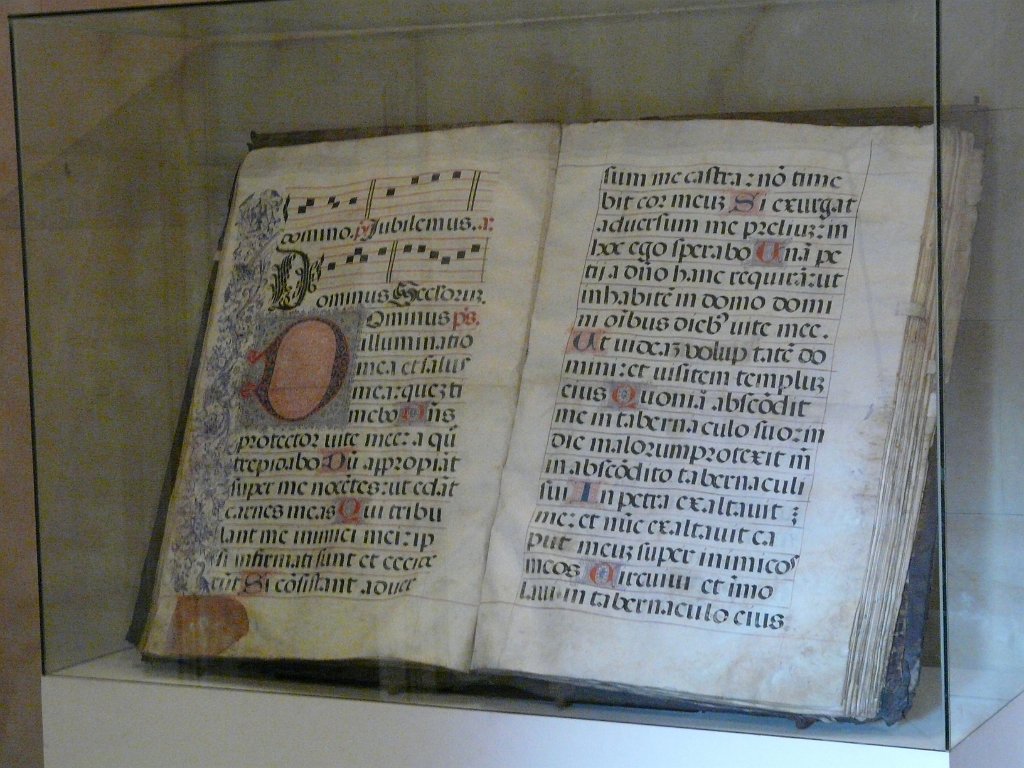 domino. ps Jubilemus. a:
Dominus Seclorum.
Dominus ps.
illuminatio
mea et salus
mea: quez ti
mebo Dñs
protector uite mee: a qũ
trepidabo Dũ appropiãt
super me nocẽtes: ut edãt
carnes meas Qui tribu
lant me inimici mei: ip
si infirmati sunt et cecide
rũt Si cõsistant aduer
sum me castra: nõ time
bit cor meuz Si exurgat
aduersum me preliuz: in
hoc ego sperabo Unã pe
tij a dño hanc requirã: ut
inhabitẽ in domo domi
ni oĩbus dieb⁹ uite mee.
Ut uideaz voluptatẽ do
mini: et uisitem templuz
eius Quoniã abscõdit
me in tabernaculo suo: in
die malorum protexit m̃
in abscõdito tabernaculi
sui In petra exaltauit
me: et nũc exaltauit ca
put meuz super inimicos
meos Circuiui et ĩmo
laui in tabernaculo eius